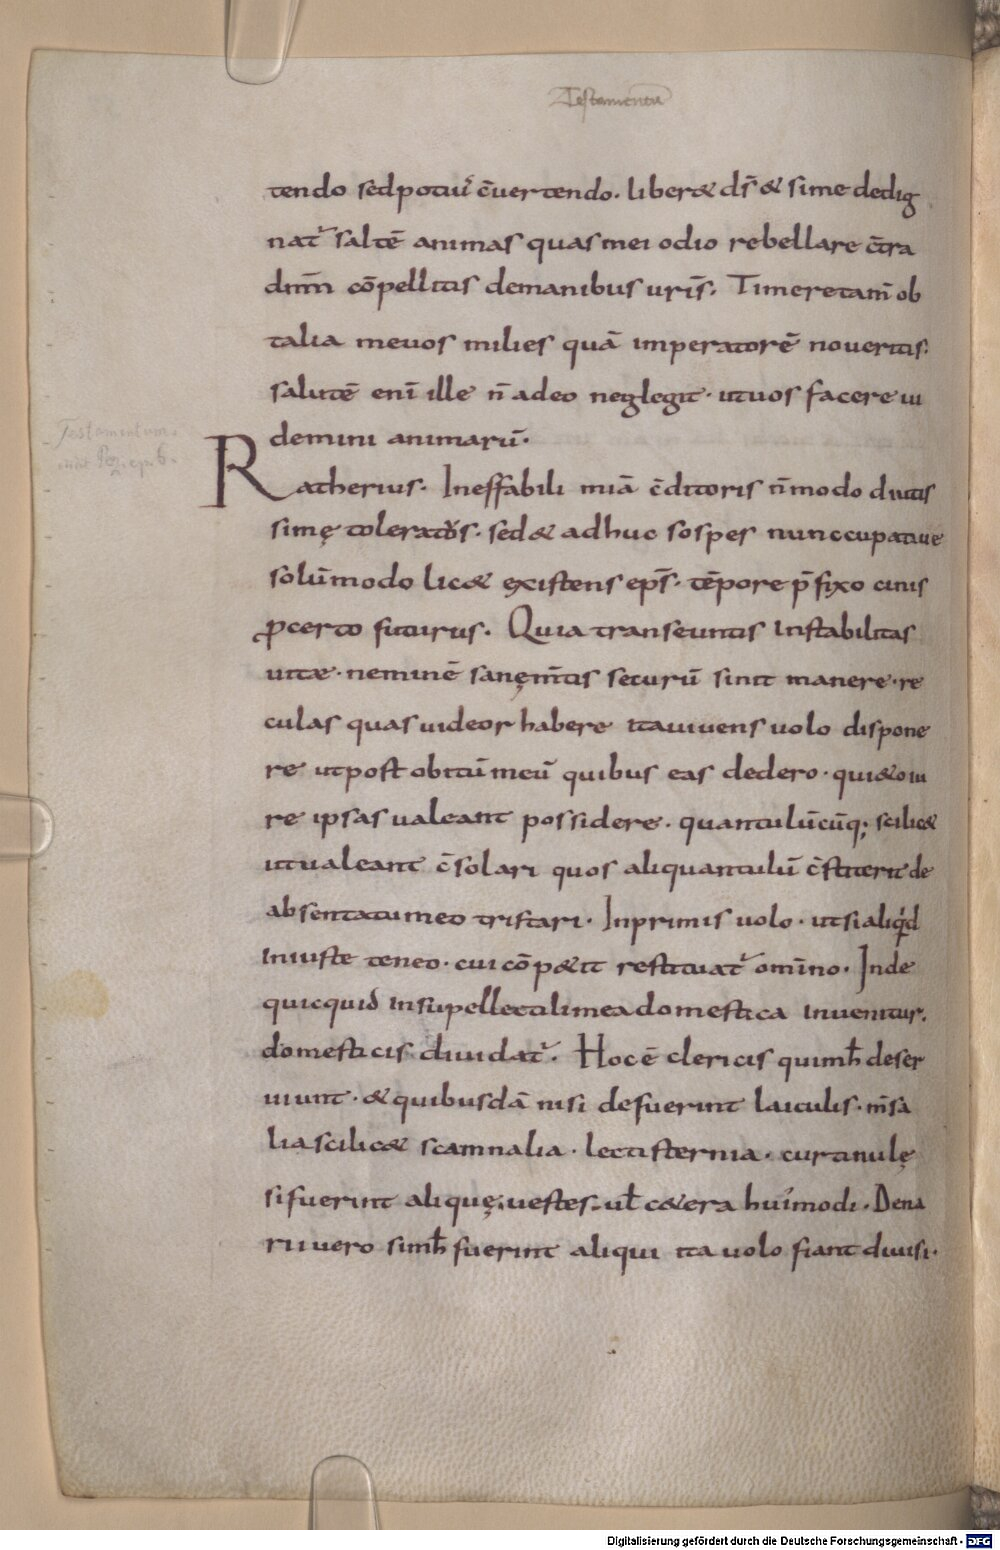 Testamentū
tendo sed potiuſ c̄uertendo. liber& dſ̄ & si me dedig
nat̉ saltē animas quas mei odio rebellare c̄tra
dnm̄ cōpellitis de manibus urīs. Timere tam̄ ob
talia me uos milies quā imperatorē nouertis.
salutē eni ille n̄ adeo neglegit. ut uos facere ui
demini animarū.
Ratherius. Ineffabili miā c̄ditoris n̄modo diutis
simę toleratōs. sed & adhuc sospes nunccupatiue
solūmodo lic& existens eps̄. tēpore p̄fixo cinis
ꝓcerto futurus. Quia transeuntis instabilitas
uitae. neminē sanęm̄tis securū sinit manere. re
culas quas uideor habere ita uiuens uolo dispone
re ut post obitū meū quibus eas dedero. qui&o iu
re ipsas ualeant possidere. quantulūcūq; scilic&
ut ualeant c̄solari quos aliquantulū c̄stiterit de
absentatu meo tristari. Inprimis uolo. ut si aliqͥd
iniuste teneo. cui cōp&it restituat̉ omīno. Inde
quicquid in supellectili mea domestica inuenitur.
domesticis diuidat̉. Hoc ē clericis qui mh̄ deser
uiunt. & quibusdā nisi defuerint laiculis. m̄sa
lia scilic& scamnalia. lectisternia. curtinulę
si fuerint aliquę. uestes. ul̄ c&era hui᾿modi. Dena
rii uero si mh̄ fuerint aliqui ita uolo fiant diuisi.
Testamentum.
Digitalisierung gefördert durch die Deutsche Forschungsgemeinschaft - DFG